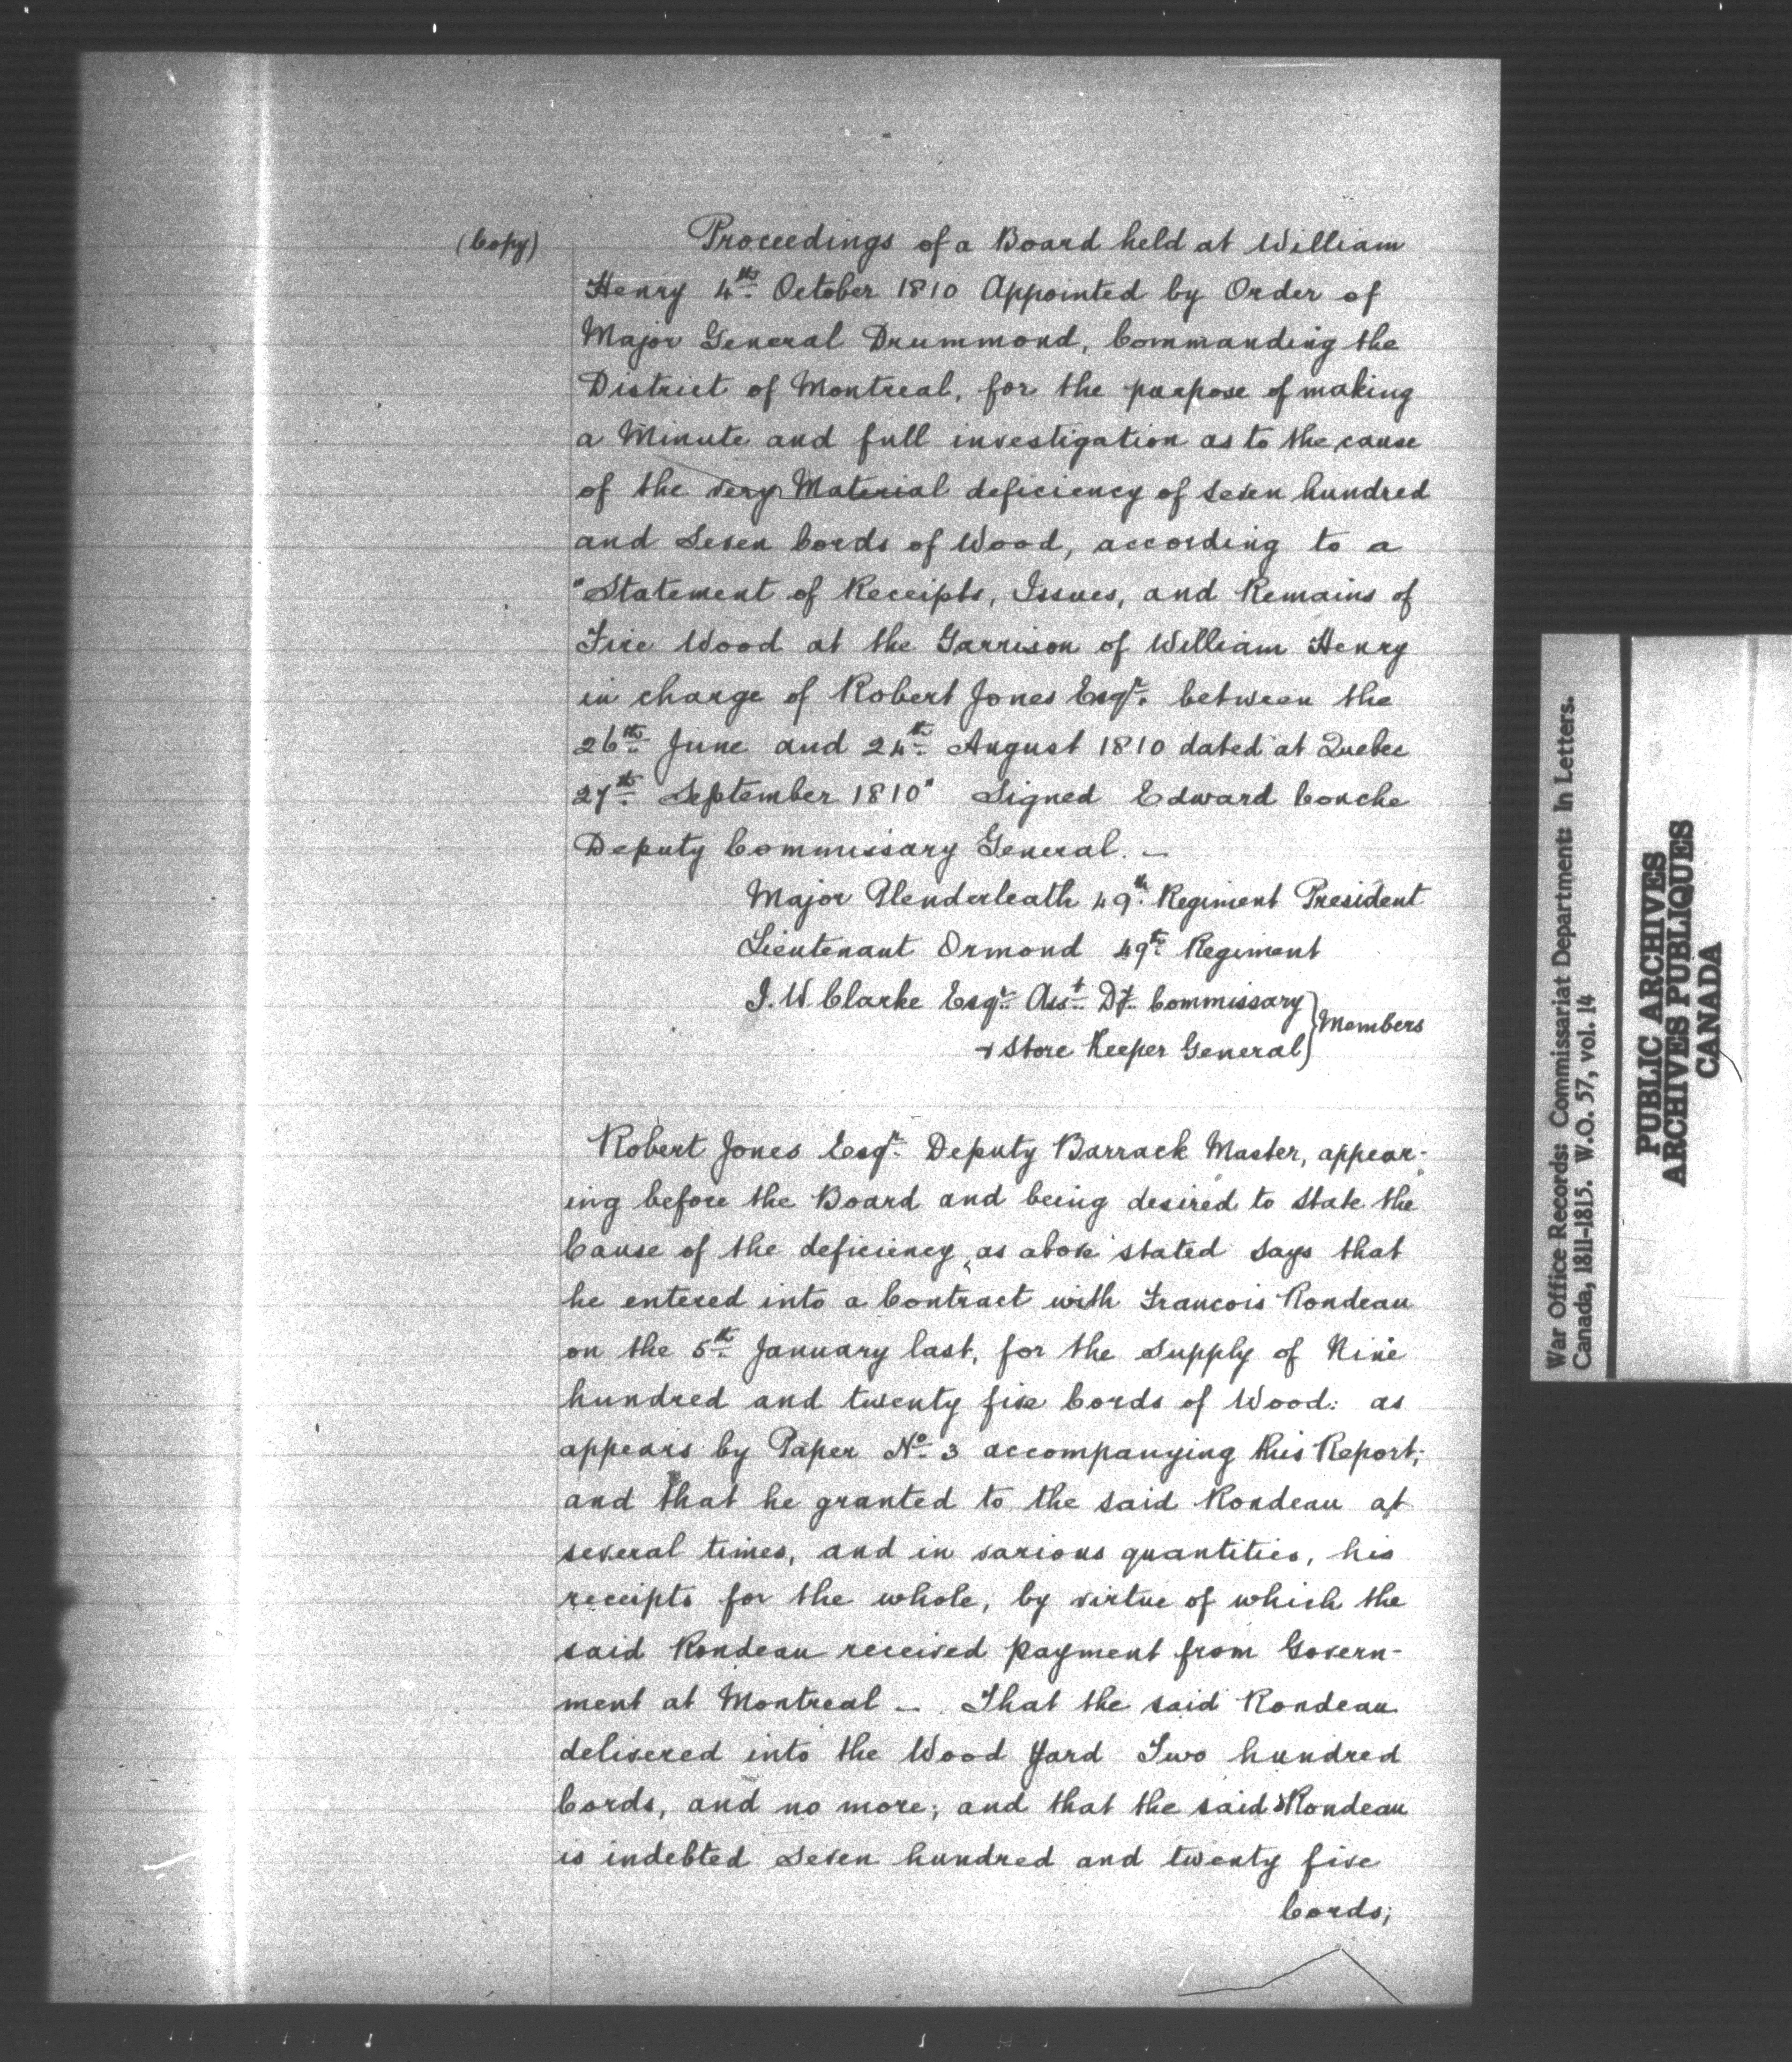 (Copy)
Proceedings of a Board held at William
Henry 4th October 1810 Appointed by Order of
Major General Drummond, Commanding the
District of Montreal, for the purpose of making
a Minute and full investigation as to the cause
of the very Material deficiency of seven hundred
and Seven Cords of Wood, according to a
"Statement of Receipts, Issues, and Remains of
Fire Wood at the Garrison of William Henry
in charge of Robert Jones Esqr. between the
26th June and 24th August 1810 dated at Quebec
27th September 1810" Signed Edward Couche
Deputy Commissary General. —
Major Plenderleath 49th Regiment President
Lieutenant Ormond 49th Regiment
J. W. Clarke Esqr. Asst. Dy. Commissary
& Store Keeper General
} Members
Robert Jones Esqr. Deputy Barrack Master, appear-
ing before the Board and being desired to state the
Cause of the deficiency, as above stated says that
he entered into a Contract with Francois Rondeau
on the 5th January last, for the Supply of Nine
hundred and twenty five Cords of Wood: as
appears by Paper No. 3 accompanying this Report;
and that he granted to the said Rondeau at
several times, and in various quantities, his
receipts for the whole, by virtue of which the
said Rondeau received payment from Govern-
ment at Montreal — That the said Rondeau
delivered into the Wood Yard Two hundred
Cords, and no more; and that the said Rondeau
is indebted Seven hundred and twenty five
Cords;
War Office Records: Commissariat Department: In Letters.
Canada, 1811-1815. W.O. 57, vol. 14
PUBLIC ARCHIVES
ARCHIVES PUBLIQUES
CANADA